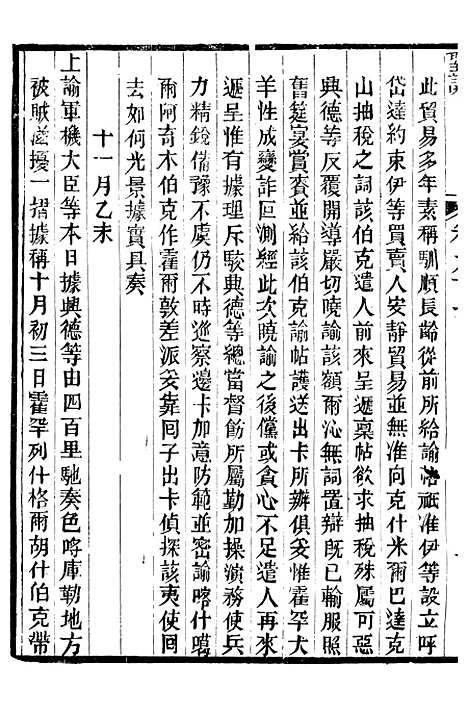 此貿易多年素稱馴順長齡從前所給諭帖祇准伊等設立呼
岱達約束伊等買賣人安靜貿易並無准向克什米爾巴達克
山抽稅之詞該伯克遣人前來呈遞稟帖欲求抽稅殊屬可惡
興德等反覆開導嚴切曉諭該額爾沁無詞置辯旣已輸服照
舊筵宴賞賚並給該伯克諭帖護送出卡所辦俱妥惟霍罕犬
羊性成變詐叵測經此次曉諭之後儻或貪心不足遣人再來
遞呈惟有據理斥駁興德等總當督飭所屬勤加操演務使兵
力精銳備豫不虞仍不時巡察邊卡加意防範並密諭喀什噶
爾阿奇木伯克作霍爾敦差派妥靠回子出卡偵探該夷使回
去如何光景據實具奏
十一月乙未
上諭軍機大臣等本日據興德等由四百里馳奏色呼庫勒地方
被賊滋擾一摺據稱十月初三日霍罕列什格爾胡什伯克帶